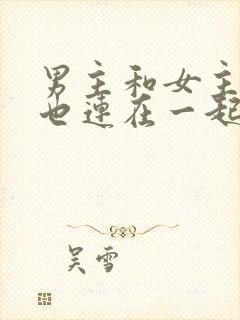 男主和女主
也连在一起
吴雪